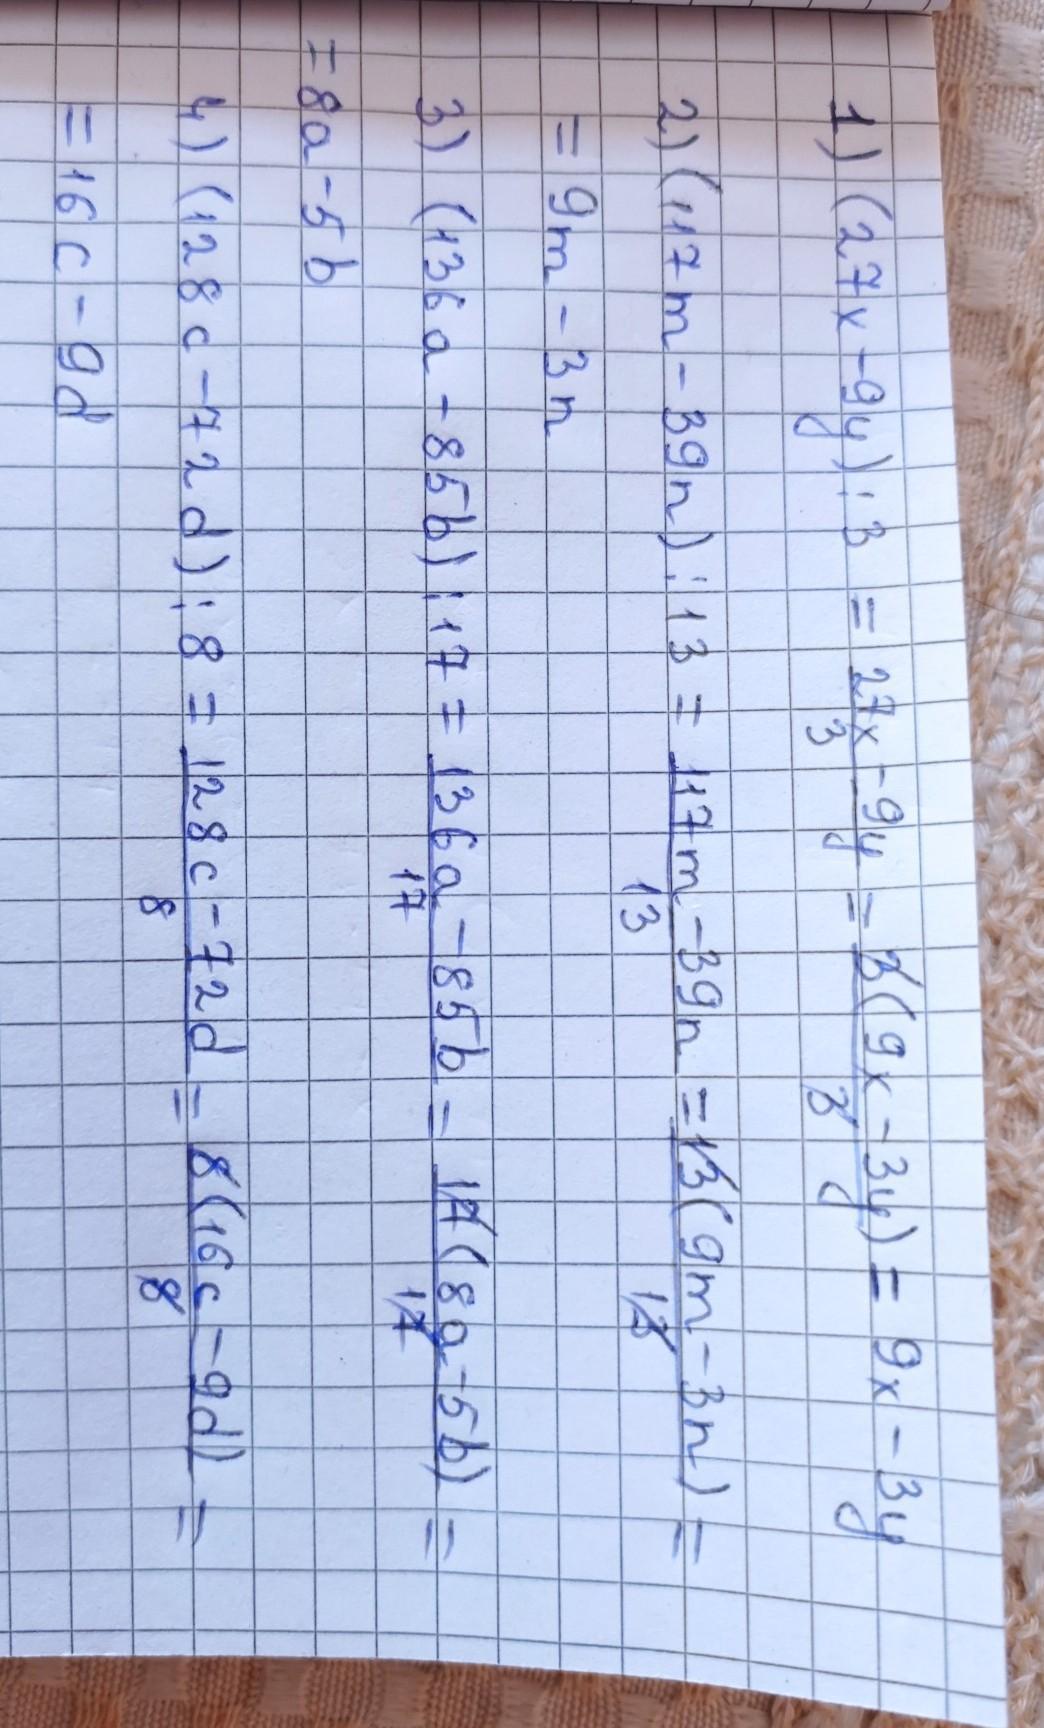 1) (27x - 9y) : 3 = \frac{27x - 9y}{3} = \frac{3(9x - 3y)}{3} = 9x - 3y
2) (117m - 39n) : 13 = \frac{117m - 39n}{13} = \frac{13(9m - 3n)}{13} =
= 9m - 3n
3) (136a - 85b) : 17 = \frac{136a - 85b}{17} = \frac{17(8a - 5b)}{17} =
= 8a - 5b
4) (128c - 72d) : 8 = \frac{128c - 72d}{8} = \frac{8(16c - 9d)}{8} =
= 16c - 9d